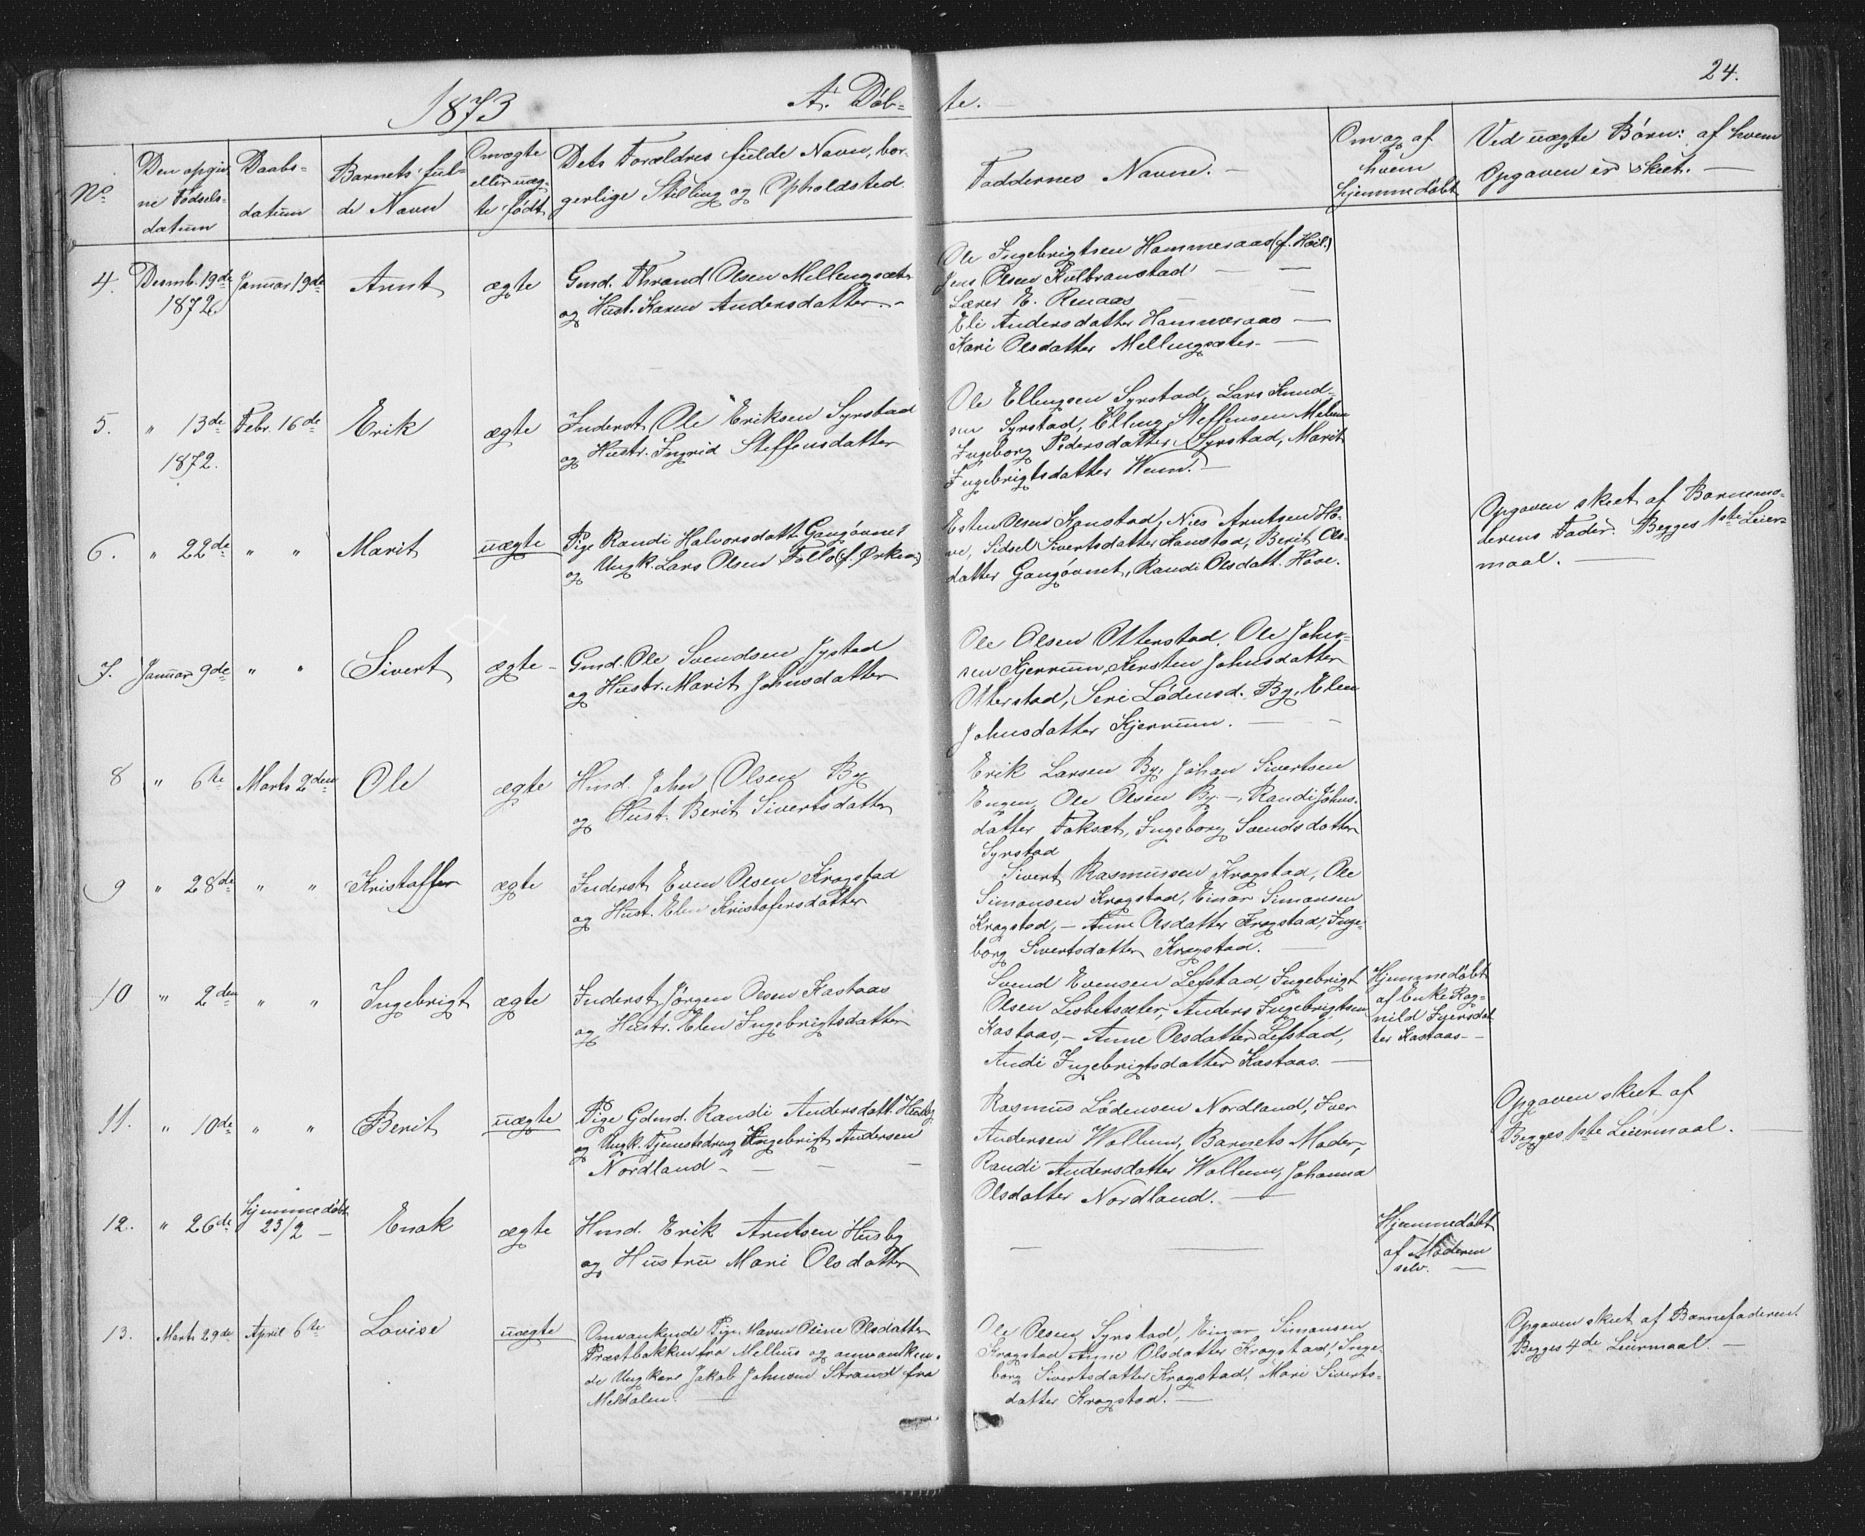 1873
A. Døb-
te.
24.
No.
Den opgiv-
ne Fødsels-
datum
Daabs-
datum
Barnets ful-
de Navn
Om ægte
eller uæg-
te født
Dets Forældres fulde Navn, bor-
gerlige Stilling og Opholdsted
Faddernes Navne. —
Om og af
hvem
hjemmedøbt
Ved uægte Børn: af hvem
Opgaven er skeet. —
4.
Desmb. 19de
1872.
Januar 19de
Arnt
ægte
Gmd. Thrond Olsen Mellingsæter
og Hust. Karen Andersdatter. -
Ole Ingebrigtsen Hammeraas (f. Hoil.)
Jens Olsen Kulbranstad
Lærer E. Renaas
Eli Andersdatter Hammeraas —
Kari Olsdatter Mellingsæter. —
5.
" 13de
1872.
Febr. 16de
Erik
ægte
Inderst. Ole Eriksen Syrstad
og Hustr. Ingrid Steffensdatter
Ole Ellingsen Syrstad, Lars Knud-
sen Syrstad, Elling Steffensen
Ingeborg Pedersdatter Syrstad, Marit
Ingebrigtsdatter Wum. —
6.
" 22de
" "
Marit
uægte
Pige Randi Halvorsdatt. Gangøvnet
og Ungk. Lars Olsen Follo (f. Ørken)
Esten Olsen Konstad, Nils Arntsen Ho-
ve, Sidsel Sivertsdatter Konstad, Berit Ols-
datter Gangøvnet, Randi Olsdatt. Hove.
Opgaven skeet af Barnemo-
derens Fader. Begges 1ste Leier-
maal. —
7.
Januar 9de
" "
Sivert
ægte -
Gmd. Ole Svendsen Jystad
og Hustr. Marit Johnsdatter
Ole Olsen Otterstad, Ole John-
sen Kjerrum, Kersten Johnsdatter
Otterstad, Seri Lødensd. By, Elen
Johnsdatter Kjerrum. —
8
" 6te
Marts 2den
Ole
ægte
Hmd. John Olsen By
og Hust. Berit Sivertsdatter
Erik Larsen By, Johan Sivertsen
Engen, Ole Olsen By. -, Randi Johns-
datter Foksæt, Ingeborg Svendsdatter
Syrstad
9
" 28de
" "
Kristoffer
ægte
Inderst Even Olsen Krogstad
og Hust. Elen Kristofersdatter
Sivert Rasmussen Krogstad, Ole
Simonsen Krogstad, Einar Simonsen
Krogstad, - Anne Olsdatter Krogstad, Inge-
borg Sivertsdatter Krogstad. —
10
" 2den
" "
Ingebrigt
ægte
Inderst Jørgen Olsen Kastaas
og Hustr. Elen Ingebrigtsdatter
Svend Evensen Lefstad, Ingebrigt
Olsen Lisbetsæter, Anders Ingebrigtsen
Kastaas, - Anne Olsdatter Lefstad,
Andi Ingebrigtsdatter Kastaas. —
Hjemmedøbt
af Enke Rag-
nild
ter Kastaas -
11.
" 10de
" "
Berit
uægte
Pige Gdmd. Randi Andersdatt. Husby
og Ungk. Tjenestedreng Ingebrigt Andersen
Nordland - - - -
Rasmus Lødensen Nordland, Iver
Andersen Wollum, Barnets Moder,
Randi Andersdatter Wollum, Johanna
Olsdatter Nordland. —
Opgaven skeet af
Begges 1ste Leiermaal. —
12.
" 26de
hjemmedøbt
23/2 -
Enok
ægte
Hmd. Erik Arntsen Husby
og Hustru Mari Olsdatter
— —
Hjemmedøbt
af Moderen
selv. —
13.
Marts 29de
April 6te
Lovise
uægte
Omvankende Pige Maren Oline Olsdatter
Præstbakken fra Melhus og omvanken-
de Ungkarl Jakob Johnsen Strand fra
Meldalen. —
Ole Olsen Syrstad, Einar Simonsen
Krogstad, Anne Olsdatter Krogstad, Inge-
borg Sivertsdatter Krogstad, Mari Siverts-
datter Krogstad. —
Opgaven skeet af Barnefaderen.
Begges 4de Leiermaal. —